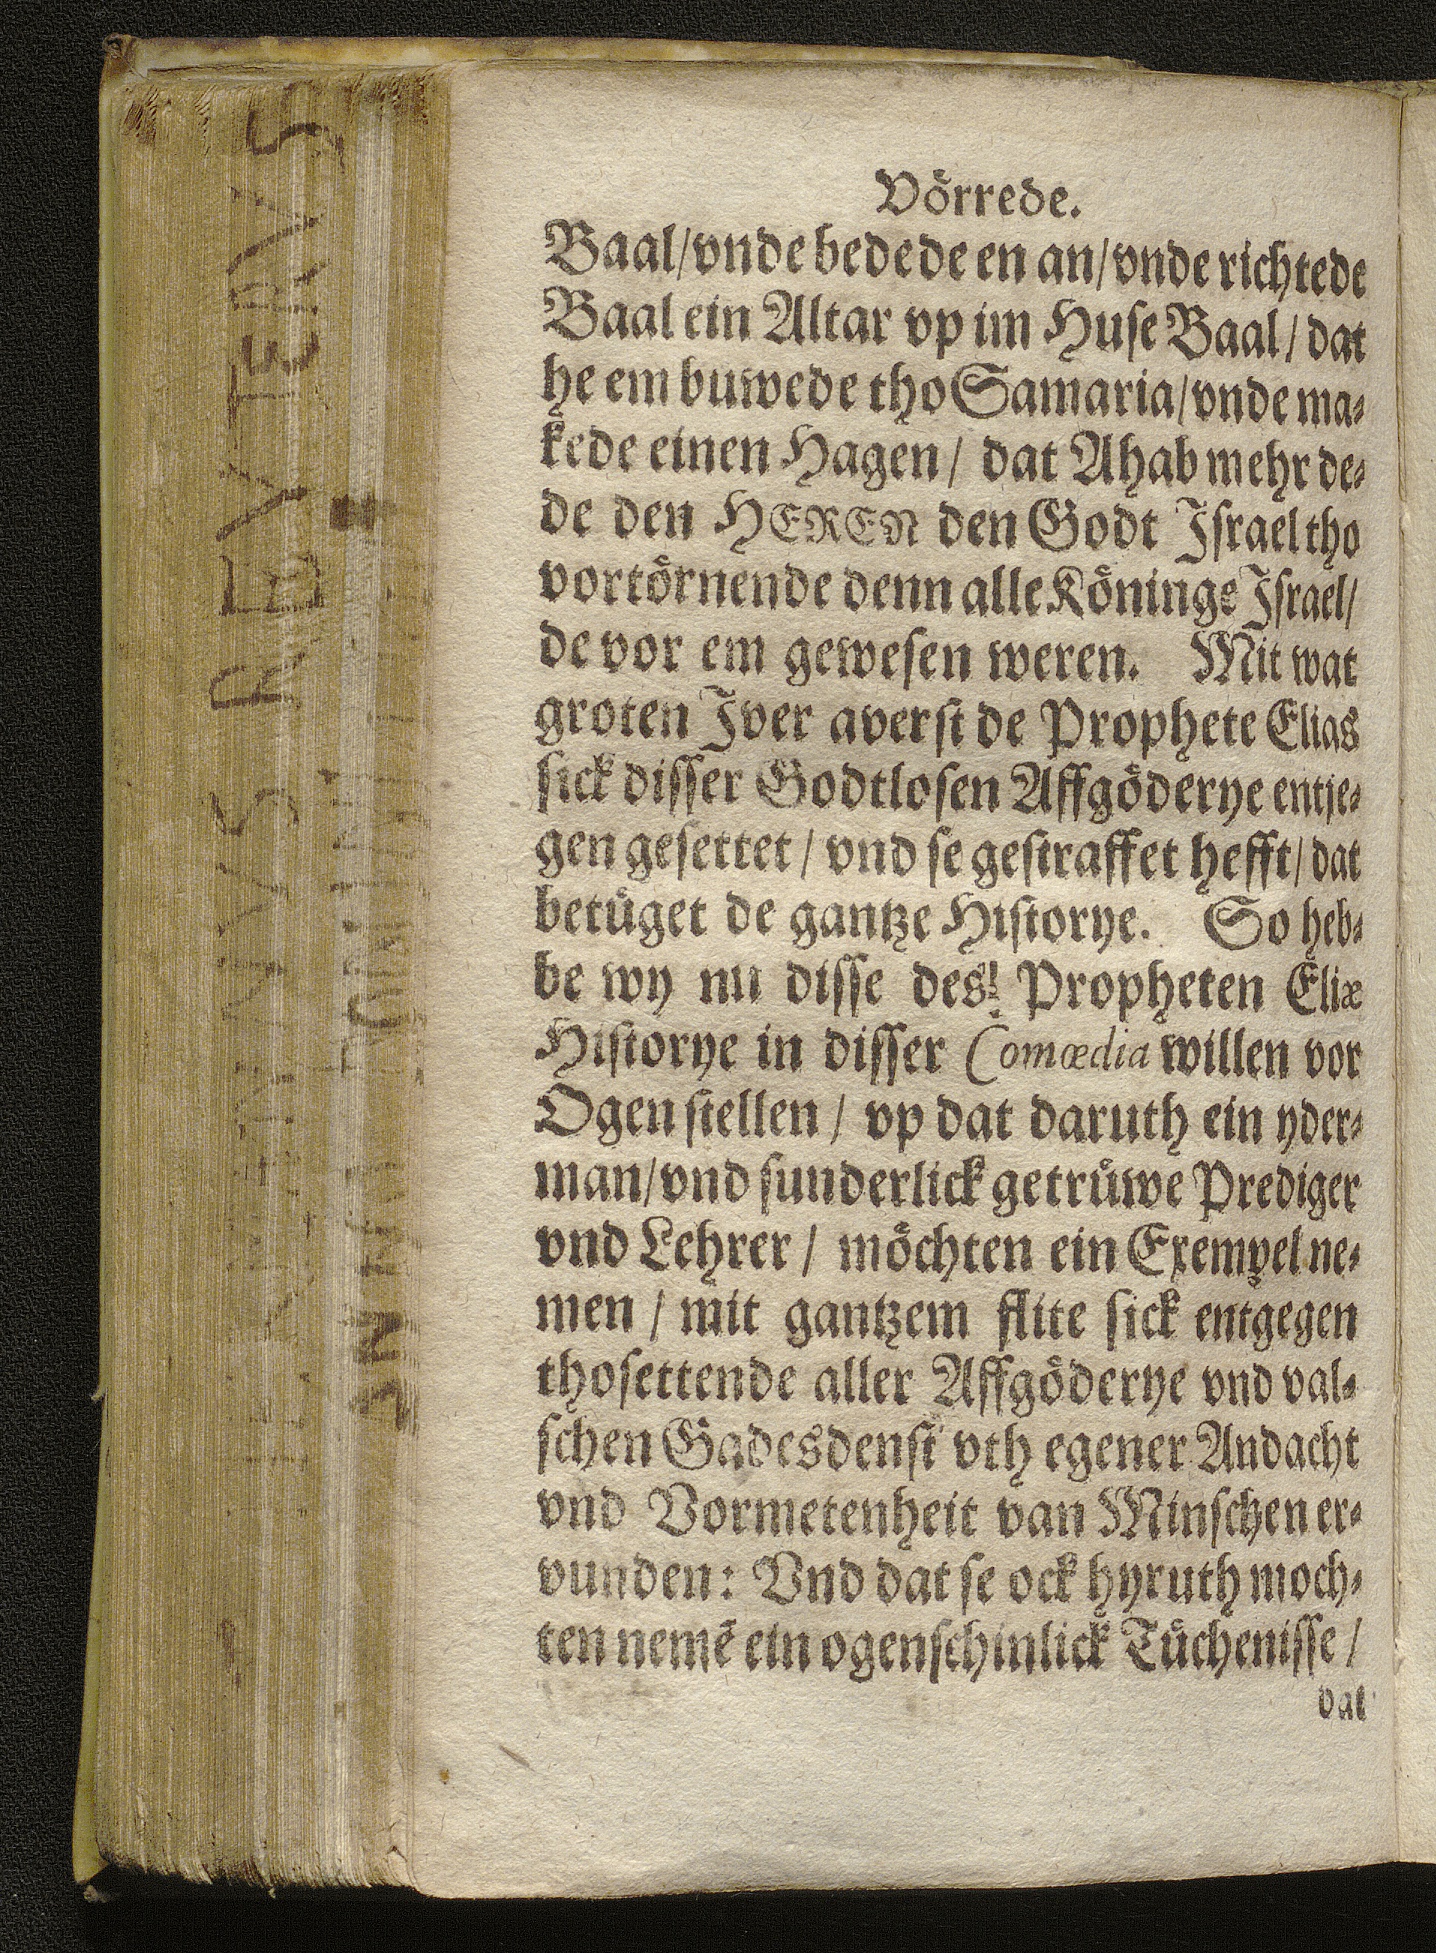 Vörrede.
Baal/vnde bedede en an/vnde richtede
Baal ein Altar vp im Huse Baal/ dat
he em buwede tho Samaria/vnde ma-
kede einen Hagen/ dat Ahab mehr de-
de den HEREN den Godt Israel tho
vortörnende denn alle Köninge Israel/
de vor em gewesen weren. Mit wat
groten Iver averst de Prophete Elias
sick disser Godtlosen Affgöderye entje-
gen gesettet/ vnd se gestraffet hefft/ dat
betüget de gantze Historye. So heb-
be wy nu disse des! Propheten Eliæ
Historye in disser Comœdia willen vor
Ogen stellen/ vp dat daruth ein yder-
man/vnd sunderlick getrüwe Prediger
vnd Lehrer/ möchten ein Exempel ne-
men/ mit gantzem flite sick entgegen
thosettende aller Affgöderye vnd val-
schen Gadesdenst vth egener Andacht
vnd Vormetenheit van Minschen er-
vunden: Vnd dat se ock hyruth moch-
ten nemē ein ogenschinlick Tüchenisse/
dat
REVTERVS